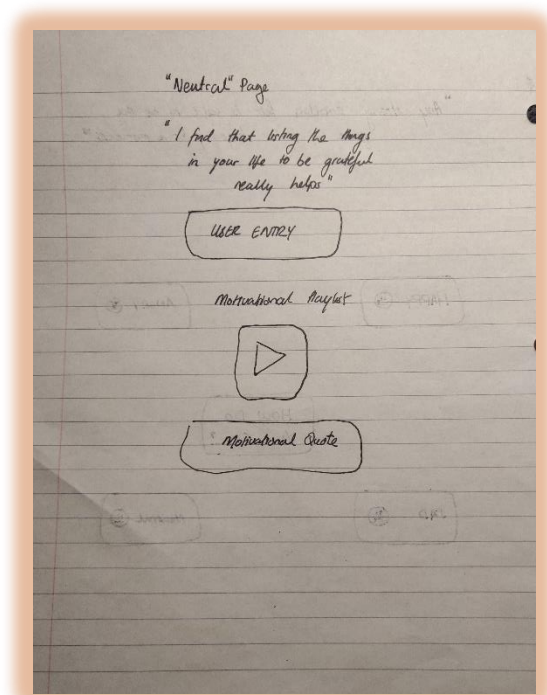 "Neutral" Page
"I find that listing the things
in your life to be grateful
really helps"
USER ENTRY
Motivational Playlist
Motivational Quote